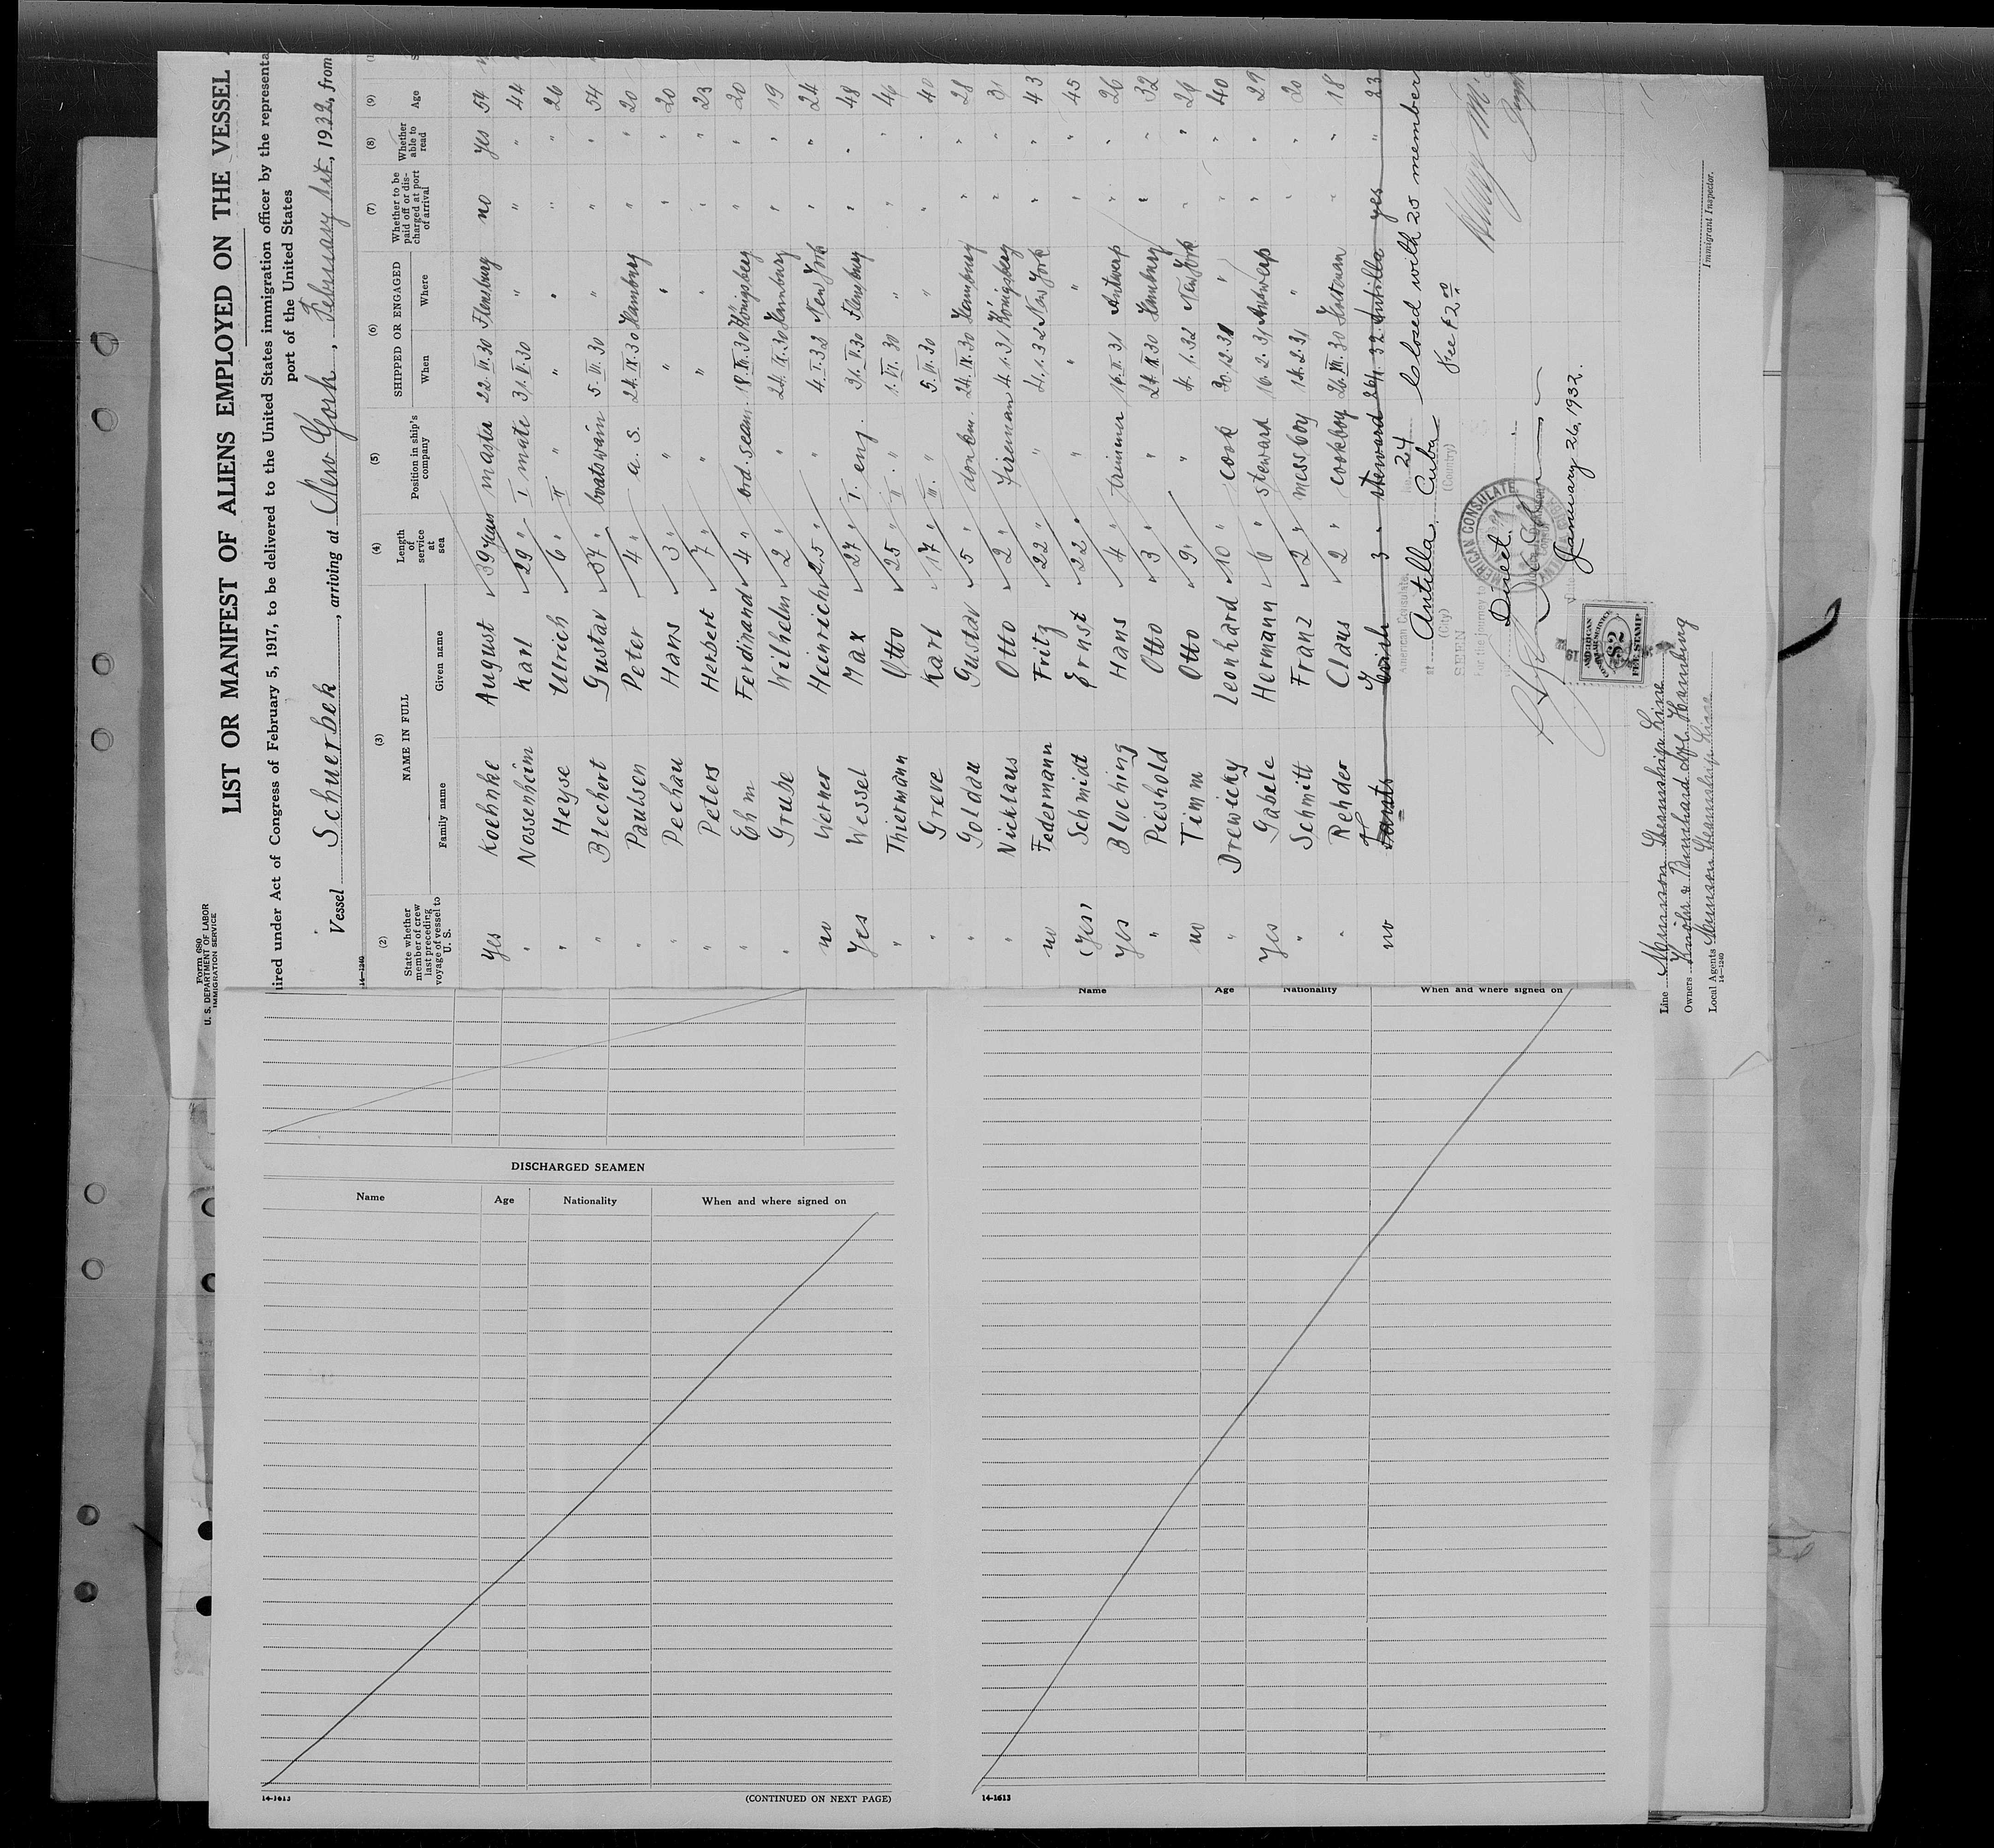 Form 680
U. S. DEPARTMENT OF LABOR
IMMIGRATION SERVICE
LIST OR MANIFEST OF ALIENS EMPLOYED ON THE VESSEL
ired under Act of Congress of February 5, 1917, to be delivered to the United States immigration officer by the representa
port of the United States
Vessel Schuerbek, arriving at New York, February 1st, 1932, from
14—1240
(2) (3) (4) (5) (6) (7) (8) (9)
State whether member of crew last preceding voyage of vessel to U. S. NAME IN FULL Family name Given name Length of service at sea Position in ship's company SHIPPED OR ENGAGED When Where Whether to be paid off or discharged at port of arrival Whether able to read Age
yes Koehnke August 39 years master 22.VI.30 Flensburg no yes 54
" Nossenheim Karl 29 " I mate 31.V.30 " " " 44
" Heyse Ulrich 6 " II " " " " " 26
" Blechert Gustav 37 " boatswain 5.VI.30 " " " 54
" Paulsen Peter 4 " a. s. 24.IX.30 Hamburg " " 20
" Pechau Hans 3 " " " " " " 20
" Peters Herbert 7 " " " " " " 23
" Ehm Ferdinand 4 " ord. seam. 18.VI.30 Königsberg " " 20
" Grube Wilhelm 2 " " 24.IX.30 Hamburg " " 19
no Werner Heinrich 2.5 " " 4.I.32 New York " " 24
yes Wessel Max 27 " I. eng. 31.V.30 Flensburg " " 48
" Thiermann Otto 25 " II. " 1.VI.30 " " " 46
" Greve Karl 17 " III. " 5.VI.30 " " " 40
" Goldau Gustav 5 " donkm. 24.IX.30 Hamburg " " 28
" Nicklaus Otto 2 " fireman 4.1.31 Königsberg " " 31
no Federmann Fritz 22 " " 4.1.32 New York " " 43
(yes) Schmidt Ernst 22 " " " " " " 45
yes Bluching Hans 4 " trimmer 16.II.31 Antwerp " " 26
" Pieshold Otto 3 " " 24.IX.30 Hamburg " " 32
no Timm Otto 9 " " 4.1.32 New York " " 26
" Drewicky Leonhard 10 " cook 30.12.31 " " " 40
yes Gabele Hermann 6 " steward 16.2.31 Antwerp " " 29
" Schmitt Franz 2 " messboy 14.2.31 " " " 20
" Rehder Claus 2 " cookboy 26.VII.30 " " 18
no 3 " steward 26/1.32 Antilla yes " 23
American Consulate No. 24 Closed with 25 member
at Antilla, Cuba Fee $2.00
(City) (Country)
SEEN
For the journey to
Direct.
AMERICAN CONSULATE
January 26, 1932.
AMERICAN
$2
FEE STAMP
Line Munson Steamship Line
Owners Knöhr & Burchard Nfl. Hamburg
Local Agents Munson Steamship Line
14—1240
Immigrant Inspector.
DISCHARGED SEAMEN
Name Age Nationality When and where signed on
14-1613
(CONTINUED ON NEXT PAGE)
Name Age Nationality When and where signed on
14-1613